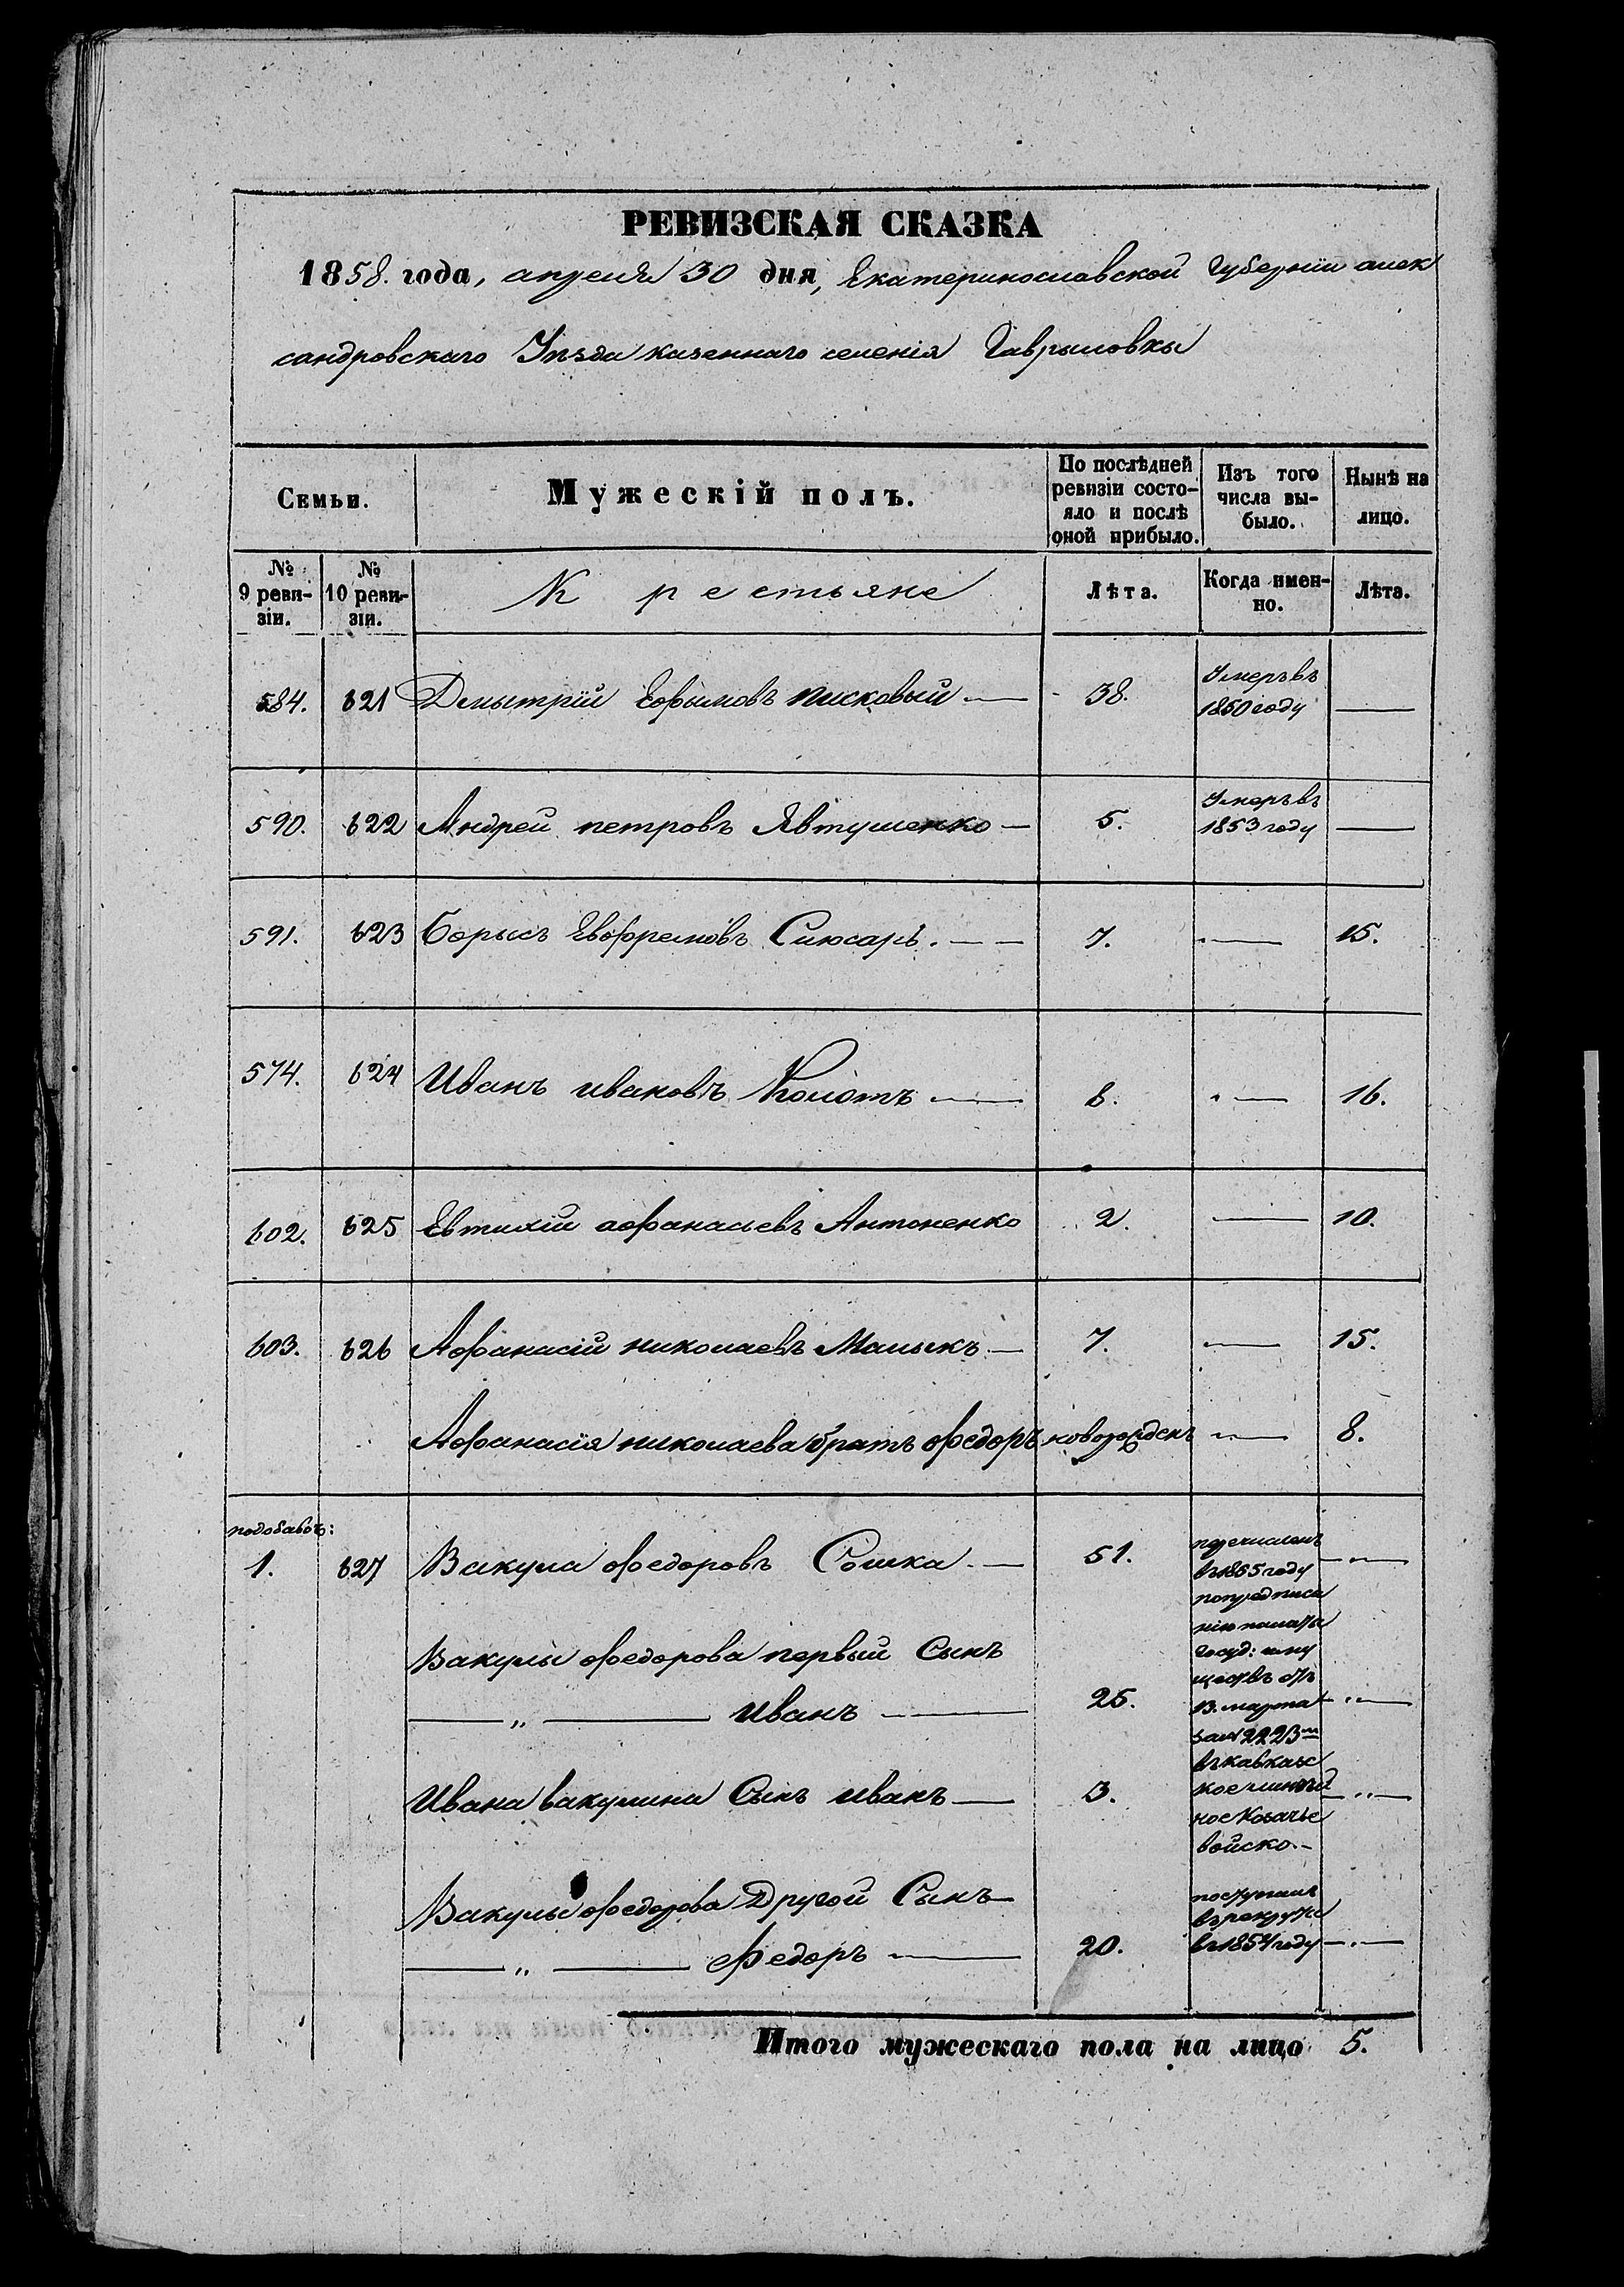 РЕВИЗСКАЯ СКАЗКА
1858. года, апреля 30 дня, Екатеринославской Губернии алек
сандровскаго Уезда казеннаго селенія Гаврыловки
Семьи.
Мужескій полъ.
По послѣдней ревизіи состо-
яло и послѣ
оной прибыло.
Изъ того
числа вы-
было.
Нынѣ на
лицо.
№ 9 реви-
зіи.
№ 10 реви-
зіи.
Крестьяне
Лѣта.
Когда имен-
но.
Лѣта.
584. 621 Дмытрій Ефымовъ Писковый — 38. Умеръ въ
1850 году —
590. 622 Андрей петровъ Явтушенко — 5. Умеръ въ
1853 году —
591. 623 Борысъ Евфремовъ Слюсарь. — — 7. — 15.
574. 624 Иванъ ивановъ Коломъ — 8. — 16.
602. 625 Евтихій афанасьевъ Антоненко 2. — 10.
603. 626 Афанасій николаевъ Малыкъ — 7. — 15.
Афанасія николаева братъ федоръ новорожденъ — 8.
подобавоч:
1. 627 Вакула федоровъ Сошка — 51. перечисленъ — " —
въ 1855 году
по предписа
нію палаты
Вакулы федорова первый Сынъ госуд: иму
ществъ отъ
— " — Иванъ — 25. 13. марта — " —
за № 2223 м
въ кавказс
Ивана вакулина Сынъ иванъ — 3. кое линѣй — " —
ное Козачье
войско. —
Вакулы федорова Другой Сынъ поступилъ
въ рекруты
— " — Федоръ — 20. въ 1854 году — " —
Итого мужескаго пола на лицо 5.